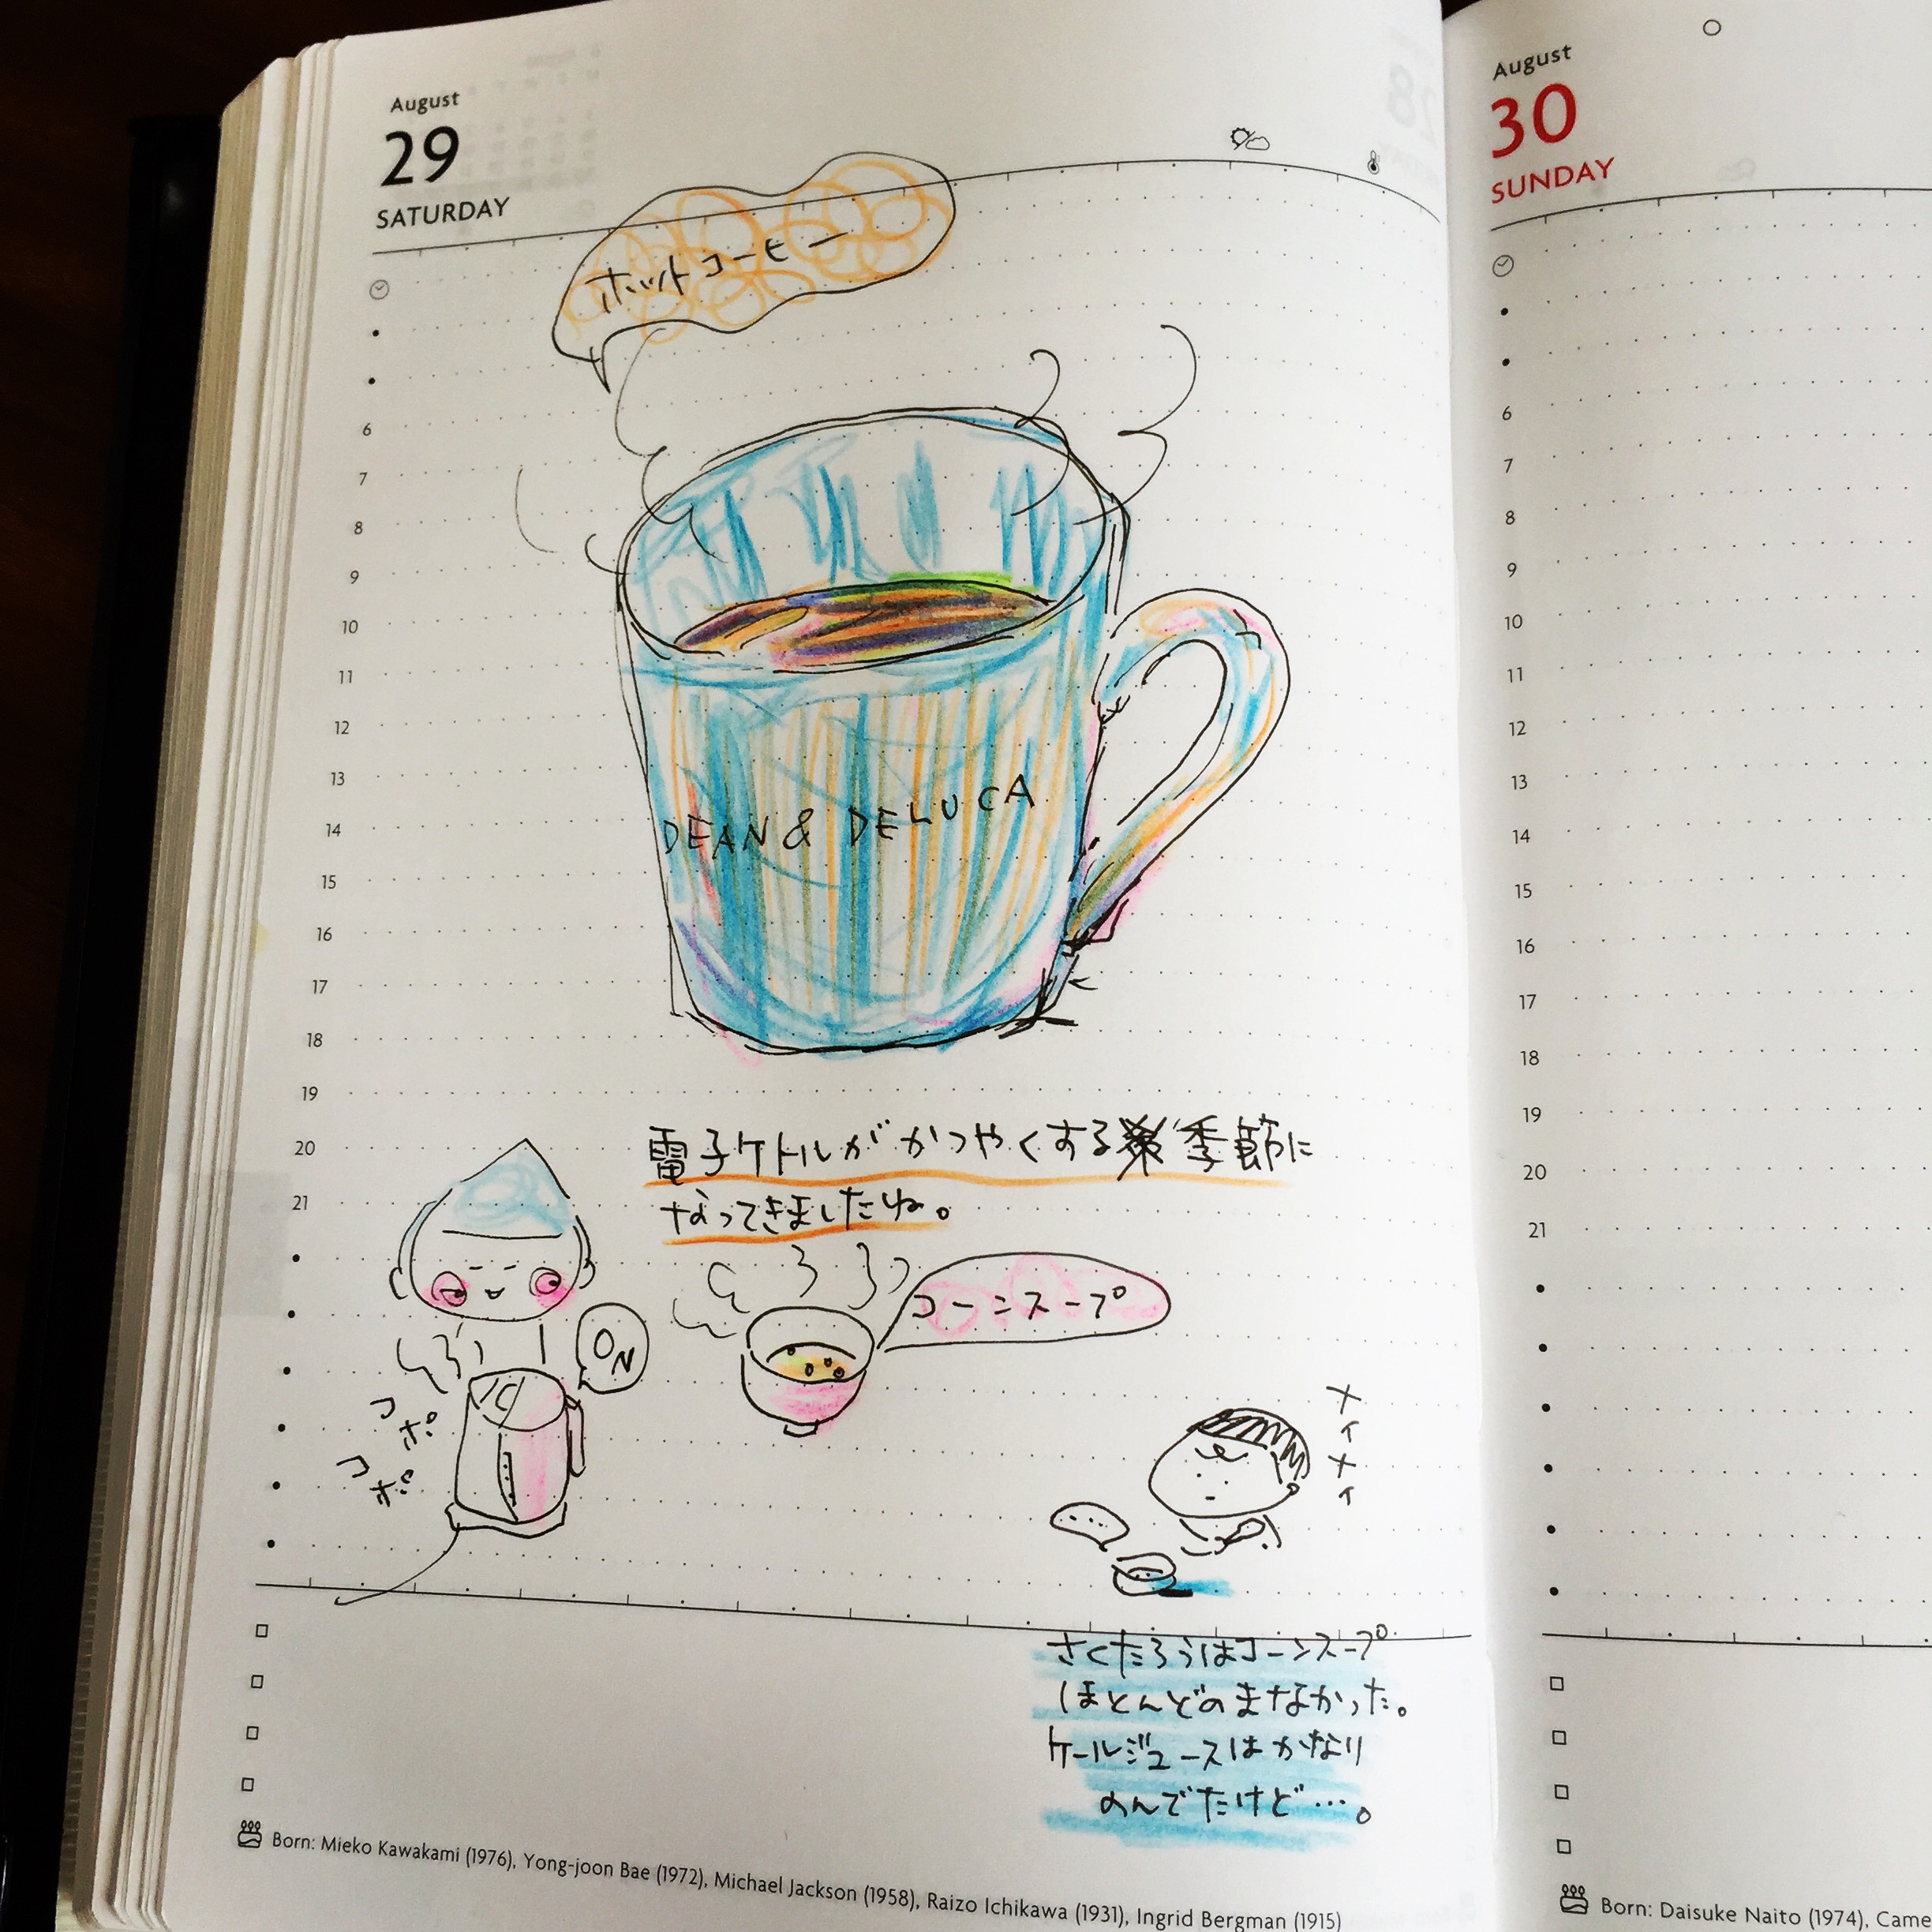 August
29
SATURDAY
ホットコーヒー
6
7
8
9
10
11
12
13
14
15
16
17
18
19
20
21
DEAN & DELUCA
電子ケトルがかつやくする季節に
なってきましたね。
コーンスープ
ON
コポ
コポ
メイメイ
さくたろうはコーンスープ
ほとんどのまなかった。
ケールジュースはかなり
のんでたけど…。
Born: Mieko Kawakami (1976), Yong-joon Bae (1972), Michael Jackson (1958), Raizo Ichikawa (1931), Ingrid Bergman (1915)
August
30
SUNDAY
6
7
8
9
10
11
12
13
14
15
16
17
18
19
20
21
Born: Daisuke Naito (1974), Came